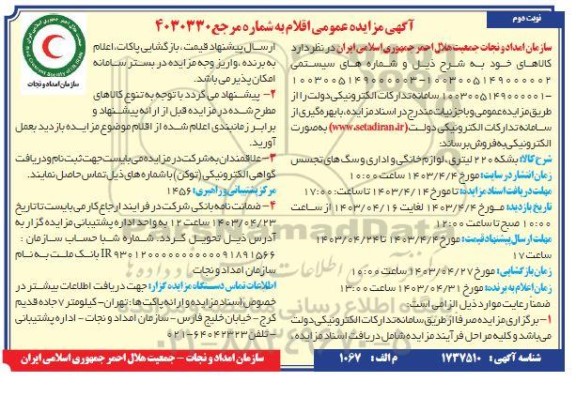 نوبت دوم
آگهی مزایده عمومی اقلام به شماره مرجع ۴۰۳۰۳۳۰
سازمان امداد و نجات جمعیت هلال احمر جمهوری اسلامی ایران در نظر دارد
کالاهای خود به شرح ذیل و شماره های سیستمی
۱۰۰۳۰۰۵۱۴۹۰۰۰۰۰۳-۱۰۰۳۰۰۵۱۴۹۰۰۰۰۰۲
-۱۰۰۳۰۰۵۱۴۹۰۰۰۰۰۱ سامانه تدارکات الکترونیکی دولت را از
طریق مزایده عمومی و با جزییات مندرج در اسناد مزایده، با بهره گیری از
سامانه تدارکات الکترونیکی دولت (www.setadiran.ir) به صورت
الکترونیکی به فروش برساند:
شرح کالا: بشکه ۲۲۰ لیتری، لوازم خانگی و اداری و سگ های تجسس
زمان انتشار در سایت: مورخ ۱۴۰۳/۴/۴ ساعت ۱۰:۰۰
مهلت دریافت اسناد مزایده: تا مورخ ۱۴۰۳/۴/۱۴ تا ساعت: ۱۷:۰۰
تاریخ بازدید: مورخ ۱۴۰۳/۴/۴ لغایت ۱۴۰۳/۰۴/۱۶ از ساعت
۱۰:۰۰ صبح تا ساعت ۱۲:۰۰
مهلت ارسال پیشنهاد قیمت: مورخ ۱۴۰۳/۴/۴ تا ۱۴۰۳/۰۴/۲۴
ساعت ۱۷
زمان بازگشایی: مورخ ۱۴۰۳/۰۴/۲۷ ساعت ۱۰:۰۰
زمان اعلام به برنده: مورخ ۱۴۰۳/۰۴/۳۱ ساعت ۱۳:۰۰
ضمنا رعایت موارد ذیل الزامی است:
۱- برگزاری مزایده صرفا از طریق سامانه تدارکات الکترونیکی دولت
می باشد و کلیه مراحل فرآیند مزایده شامل دریافت اسناد مزایده،
ارسال پیشنهاد قیمت، بازگشایی پاکات، اعلام
به برنده، واریز وجه مزایده در بستر سامانه
امکان پذیر می باشد.
۲- پیشنهاد می گردد با توجه به تنوع کالاهای
مطرح شده در مزایده قبل از ارائه پیشنهاد و
برابر زمانبندی اعلام شده از اقلام موضوع مزایده بازدید بعمل
آورید.
۳- علاقمندان به شرکت در مزایده می بایست جهت ثبت نام و دریافت
گواهی الکترونیکی (توکن) با شماره های ذیل تماس حاصل نمایند.
مرکز پشتیبانی و راهبری: ۱۴۵۶
۴- ضمانت نامه بانکی شرکت در فرایند ارجاع کار می بایست تا تاریخ
۱۴۰۳/۰۴/۲۳ ساعت ۱۲ به واحد اداره پشتیبانی مزایده گزار به
آدرس ذیل تحویل گردد. شماره شبا حساب سازمان :
بانک ملت به نام
سازمان امداد و نجات
اطلاعات تماس دستگاه مزایده گزار: جهت دریافت اطلاعات بیشتر در
خصوص اسناد مزایده و ارائه پاکت ها: تهران- کیلومتر ۷ جاده قدیم
کرج- خیابان خلیج فارس- سازمان امداد و نجات- اداره پشتیبانی
-تلفن ۶۴۰۴۲۳۲۳-۰۲۱
سازمان امداد و نجات
شناسه آگهی: ۱۷۳۷۵۱۰
م الف: ۱۰۶۷
سازمان امداد و نجات - جمعیت هلال احمر جمهوری اسلامی ایران